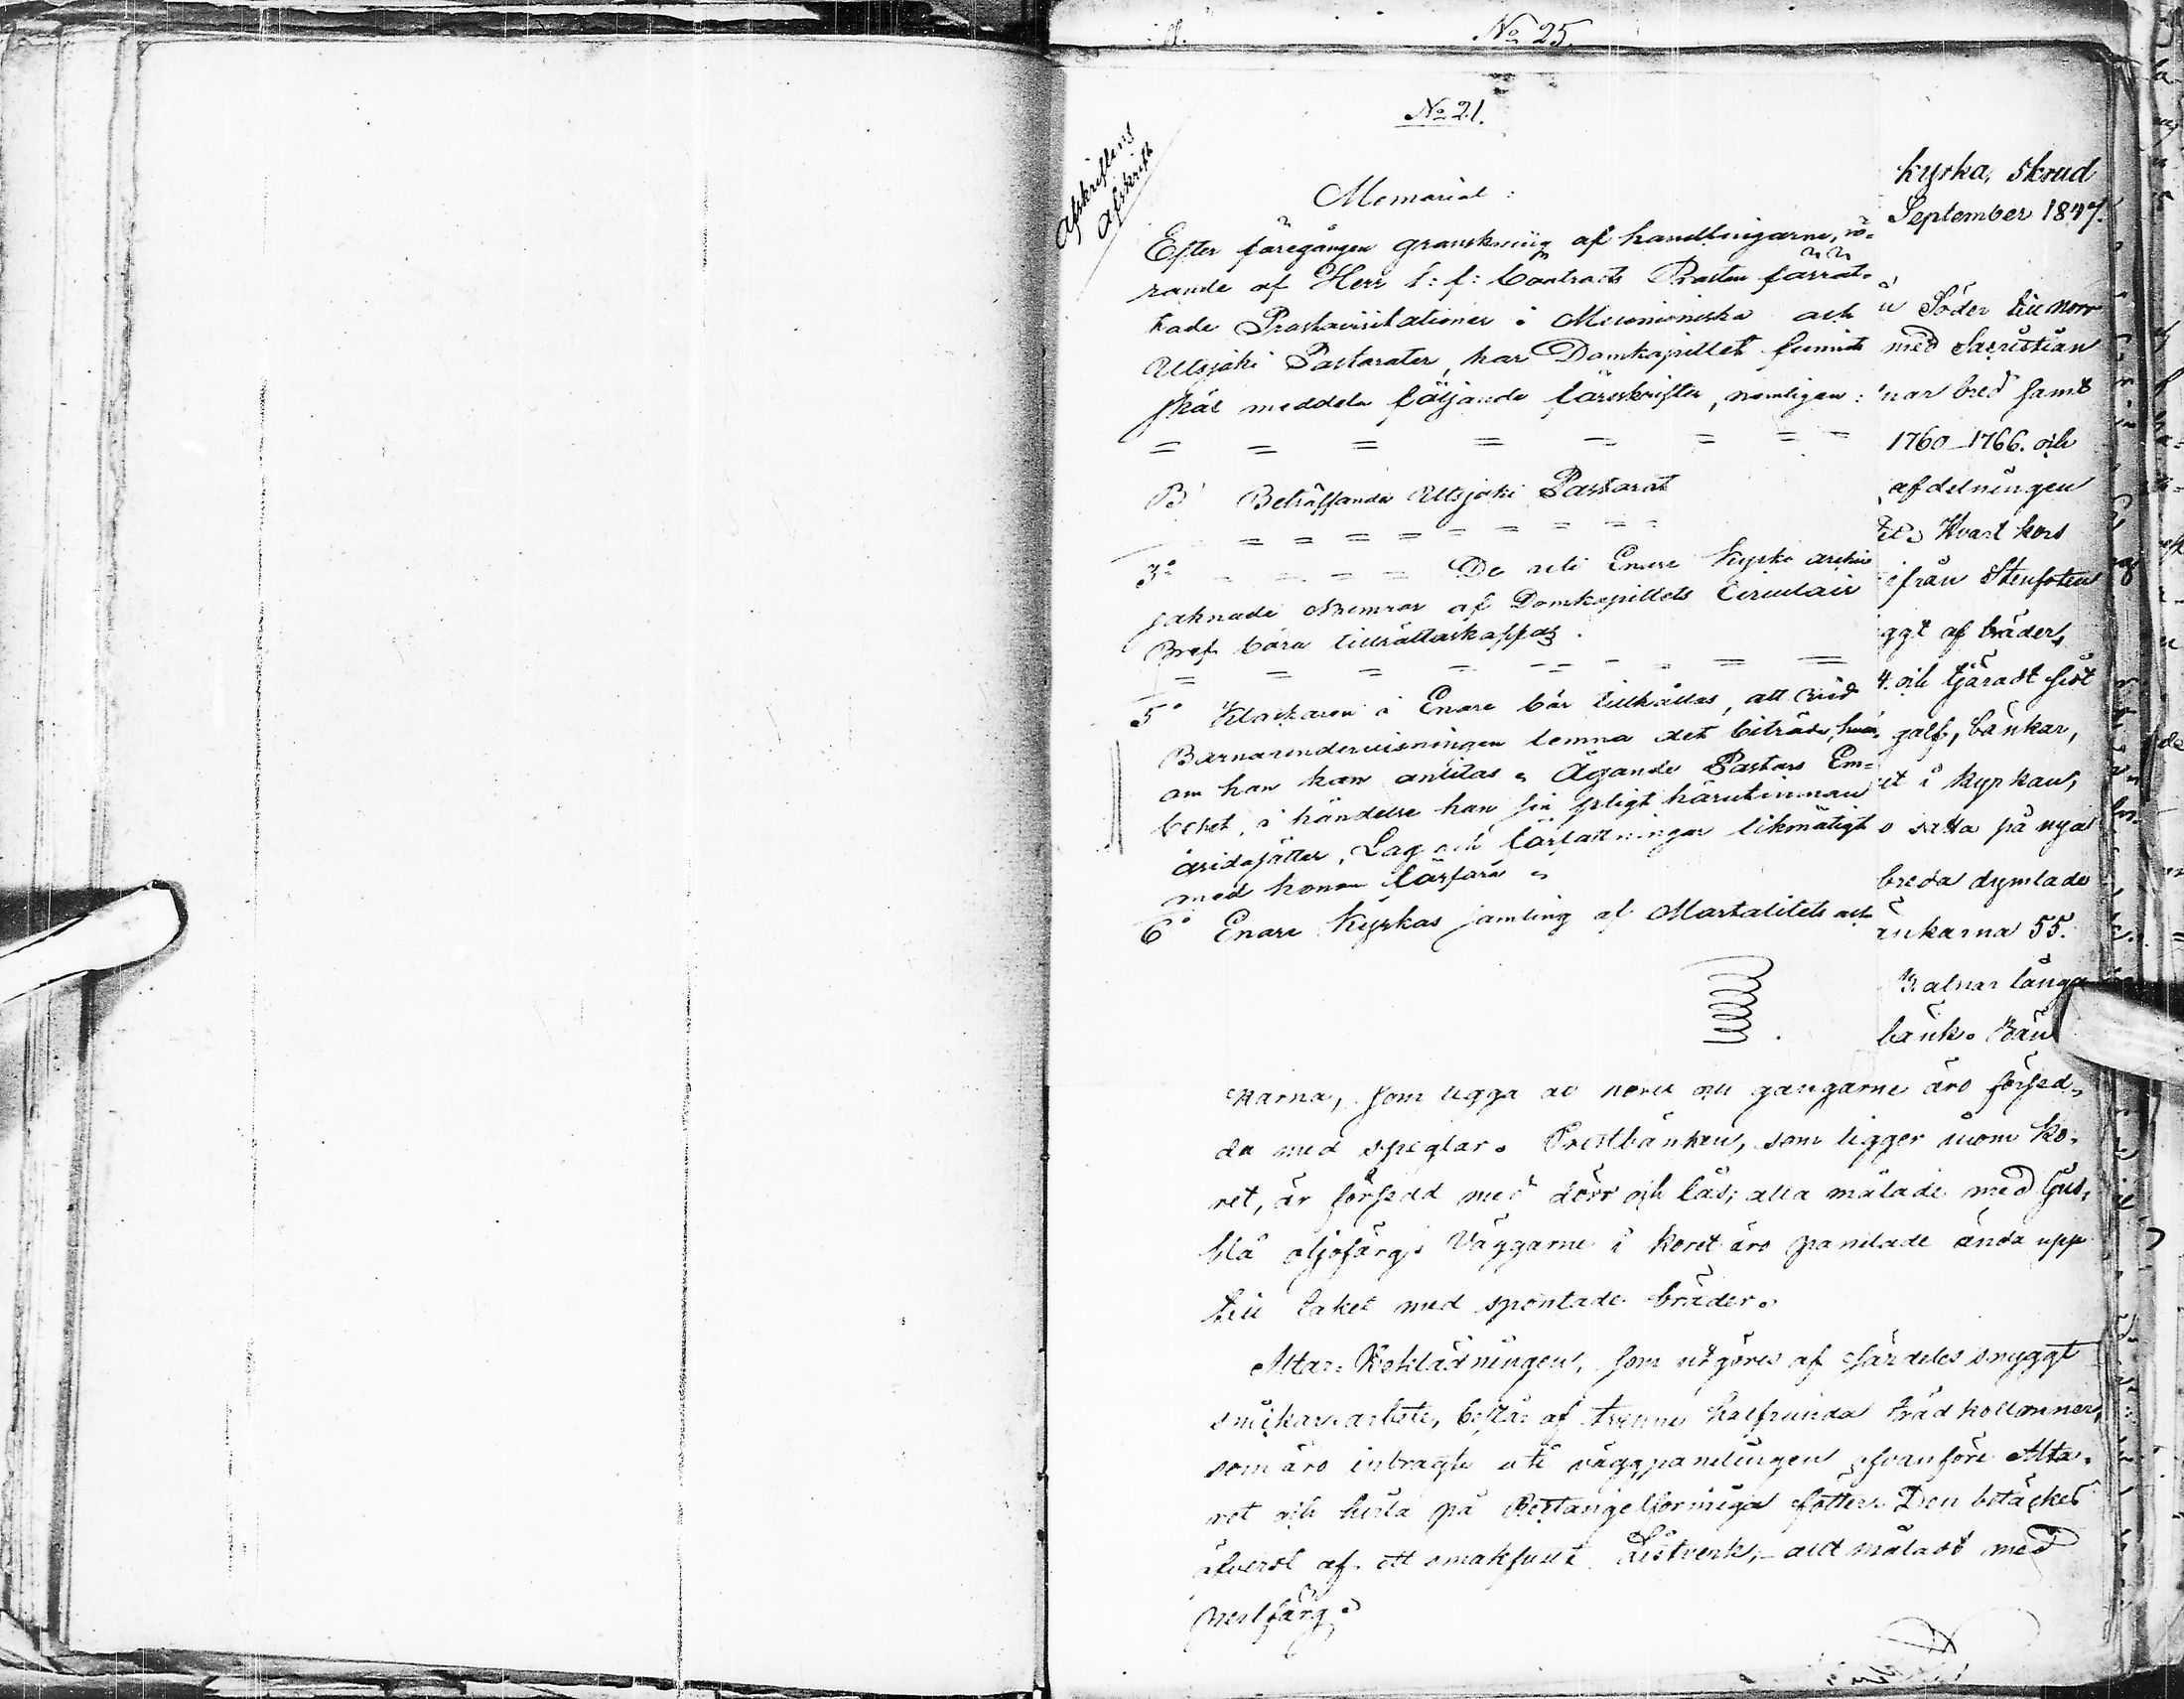 No 25.
No 21.
Afskriftens
Afskrift
Memorial:
Efter föregången granskning af handlingarne, rö-
rande af Herr t: f: Contracts Prosten förrät-
tade Prostavisitationer i Muonioniska och
Utsjoki Pastorater, har Domkapitlet funnit
skäl meddela följande förskrifter, nemligen:
= = = = = = = =
B Beträffande Utsjoki Pastorat
= = = = = = = =
3o = = = = De uti Enare Kyrko archiv
saknade Nummer af Domkapitlets Circulair
Bref böra tillrättaskaffas.
= = = = = = = =
5o Klockaren i Enare bör tillhållas, att vid
Barnaundervisningen lemna det biträde, hvar-
om han kan anlitas; Ägande Pastors Em-
betet, i händelse han sin pligt härutinnan
åsidosätter, Lag och författningar likmätigt
med honom förfara.
6o Enare Kyrkas samling af Mortalitets och
kyrka, skrud
September 1847.
Söder till norr
med Sacristian
nar bred samt
1760–1766. och
afdelningen
Hvart kors
ifrån Stenfoten
ggt af bräder,
4. och tjäradt sist
golf, bänkar,
et i kyrkan,
o satta på nya
breda dymlade
änkarna 55.
alnar långa
bänk. Bän
karna, som ligga åt koret och gångarne äro försed-
da med speglar. Prestbänken, som ligger inom ko-
ret, är försedd med dörr och lås; alla målade med ljus-
blå oljefärg. Väggarne i koret äro panelade ända upp
till taket med spontade bräder.
Altar-Beklädningen, som utgöres af särdeles snyggt
snickare arbete, består af tvenne halfrunda Trädkollonner,
som äro inbragte uti väggpanelingen ofvanföre Alta-
ret och hvila på Rectangelformiga fötter. Den betäckes
öfverst af ett smakfullt Listverk, – allt måladt med
perlfärg.